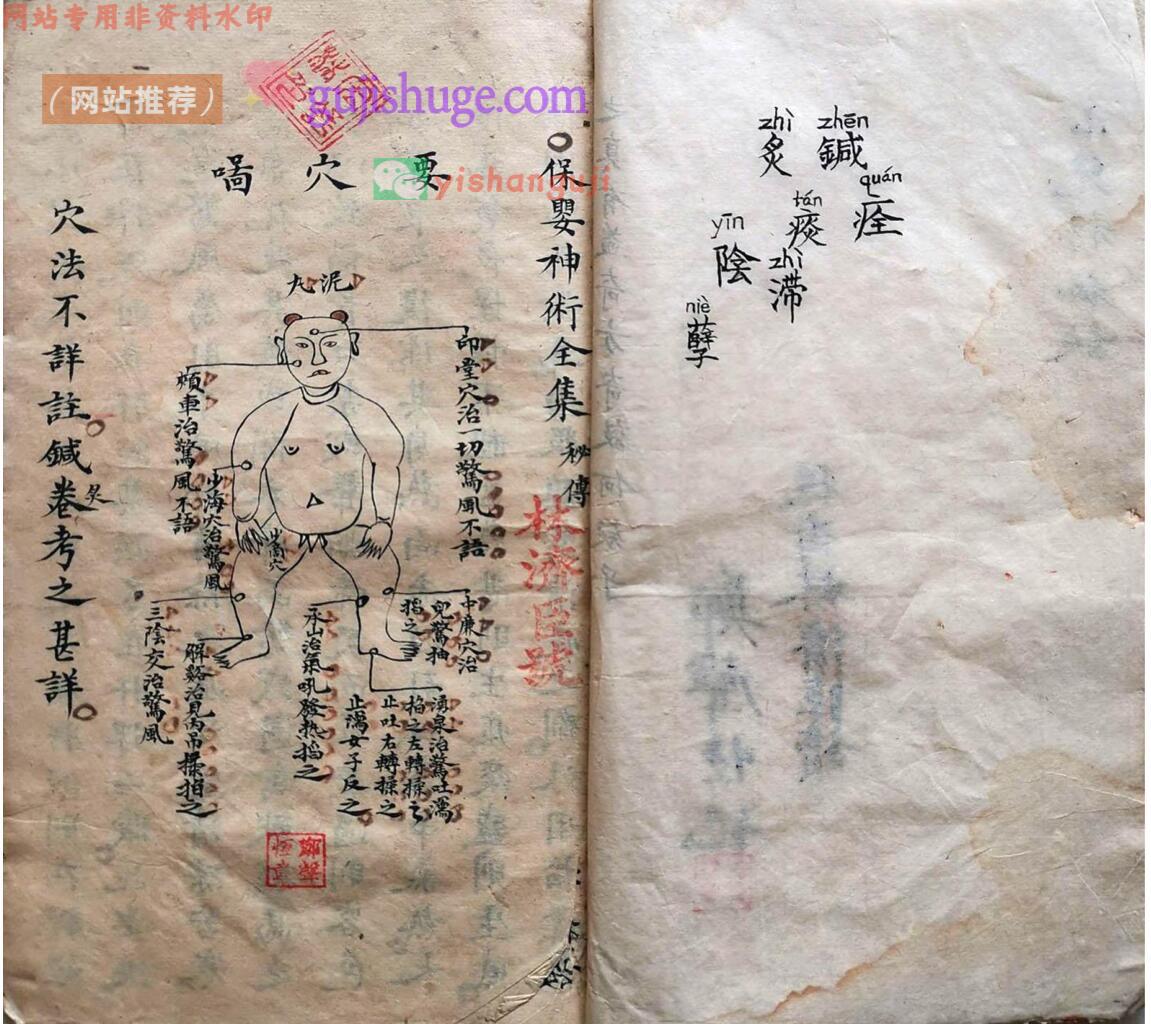 网站专用非资料水印
(网站推荐)
gujishuge.com
yishanguji
zhēn
鍼
zhì
炙
quán
痊
tán
痰
yīn
陰
zhì
滞
niè
孽
保嬰神術全集 秘傳
林濟臣號
要穴啚
泥丸
印堂穴治一切驚風不語
頰車治驚風不語
少海穴治驚風
中廉穴治
兒驚抽
掐之
湧泉治驚吐瀉
掐之左轉揉之
止吐右轉揉之
止瀉女子反之
承山治氣吼發热掐之
解谿治見丙吊揉掐之
三陰交治驚風
穴法不詳註鍼炙卷考之甚詳